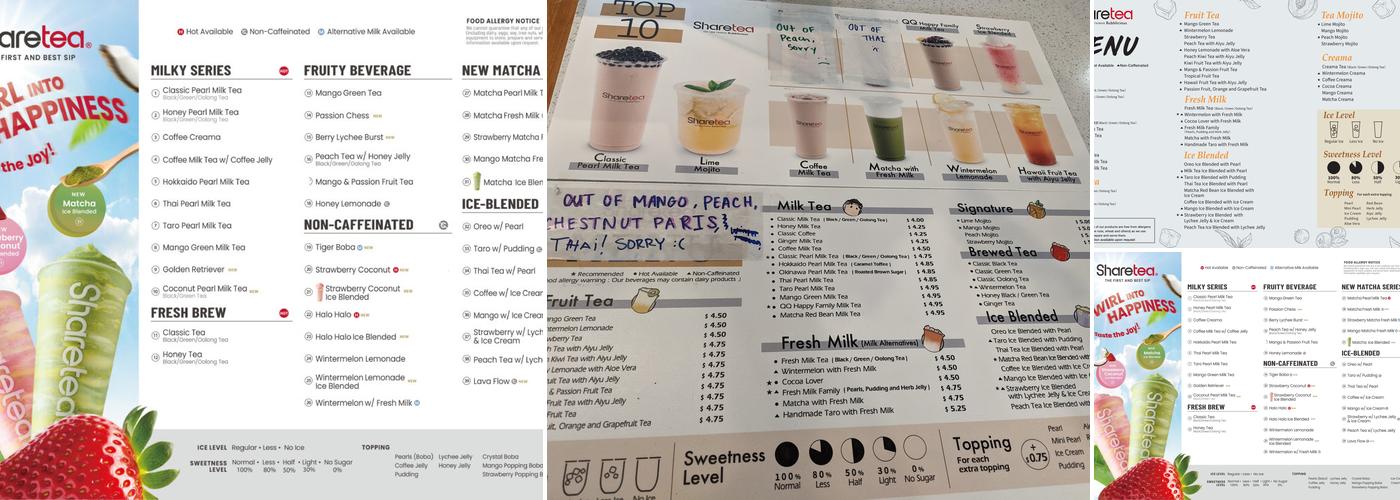 aretea®
THE FIRST AND BEST SIP
RL INTO
HAPPINESS
the Joy!
NEW
Matcha
Ice Blended
Sharetea
FOOD ALLERGY NOTICE
Hot Available Non-Caffeinated Alternative Milk Available
MILKY SERIES HOT
1 Classic Pearl Milk Tea
Black/Green/Oolong Tea
2 Honey Pearl Milk Tea
Black/Green/Oolong Tea
3 Coffee Creama
4 Coffee Milk Tea w/ Coffee Jelly
5 Hokkaido Pearl Milk Tea
6 Thai Pearl Milk Tea
7 Taro Pearl Milk Tea
8 Mango Green Milk Tea
9 Golden Retriever NEW
10 Coconut Pearl Milk Tea NEW
Black/Green/Oolong Tea
FRESH BREW HOT
11 Classic Tea
Black/Green/Oolong Tea
12 Honey Tea
Black/Green/Oolong Tea
FRUITY BEVERAGE
13 Mango Green Tea
14 Passion Chess NEW
15 Berry Lychee Burst NEW
16 Peach Tea w/ Honey Jelly
Black/Green/Oolong Tea
Mango & Passion Fruit Tea
18 Honey Lemonade
NON-CAFFEINATED
19 Tiger Boba NEW
20 Strawberry Coconut NEW
21 Strawberry Coconut
Ice Blended NEW
22 Halo Halo NEW
23 Halo Halo Ice Blended NEW
24 Wintermelon Lemonade
25 Wintermelon Lemonade
Ice Blended NEW
26 Wintermelon w/ Fresh Milk
NEW MATCHA
27 Matcha Pearl Milk T
28 Matcha Fresh Milk
29 Strawberry Matcha F
30 Mango Matcha Fre
31 Matcha Ice Blen
ICE-BLENDED
32 Oreo w/ Pearl
33 Taro w/ Pudding
34 Thai Tea w/ Pearl
35 Coffee w/ Ice Cream
36 Mango w/ Ice Crea
37 Strawberry w/ Lych
& Ice Cream
38 Peach Tea w/ Lych
39 Lava Flow NEW
ICE LEVEL Regular • Less • No Ice
SWEETNESS LEVEL Normal • Less • Half • Light • No Sugar
100% 80% 50% 30% 0%
TOPPING
Pearls (Boba) Lychee Jelly Crystal Boba
Coffee Jelly Honey Jelly Mango Popping Bob
Pudding Strawberry Popping
TOP
10
Sharetea
OUT OF
Peach,
Sorry
OUT OF
THAI
QQ Happy Family
Milk Tea
Strawberry
Ice Blended
Classic
Pearl Milk Tea
Lime
Mojito
Coffee
Milk Tea
Matcha with
Fresh Milk
Wintermelon
Lemonade
Hawaii Fruit Tea
with Aiyu Jelly
OUT OF MANGO, PEACH,
CHESTNUT PARIS,
THAI! SORRY :(
★ Recommended ● Hot Available ▲ Non-Caffeinated
ood allergy warning : Our beverages may contain dairy products )
Fruit Tea
ngo Green Tea $ 4.50
ntermelon Lemonade $ 4.50
h Tea with Aiyu Jelly $ 4.75
Kiwi Tea with Aiyu Jelly $ 4.75
Lemonade with Aloe Vera $ 4.75
uit Tea with Aiyu Jelly $ 4.75
& Passion Fruit Tea $ 4.75
uit Tea $ 4.75
ruit Tea with Aiyu Jelly $ 4.75
uit, Orange and Grapefruit Tea $ 4.75
Milk Tea
Classic Milk Tea ( Black / Green / Oolong Tea ) $ 4.00
Honey Milk Tea $ 4.25
Classic Coffee $ 4.25
Ginger Milk Tea $ 4.25
Coffee Milk Tea $ 4.50
Classic Pearl Milk Tea ( Black / Green / Oolong Tea ) $ 4.75
Hokkaido Pearl Milk Tea ( Caramel Toffee ) $ 4.85
Okinawa Pearl Milk Tea ( Roasted Brown Sugar ) $ 4.85
Thai Pearl Milk Tea $ 4.85
Taro Pearl Milk Tea $ 4.85
Mango Green Milk Tea $ 4.85
QQ Happy Family Milk Tea $ 4.95
Matcha Red Bean Milk Tea $ 4.95
Fresh Milk (Milk Alternatives)
Fresh Milk Tea ( Black / Green / Oolong Tea ) $ 4.50
Wintermelon with Fresh Milk $ 4.50
Cocoa Lover $ 4.50
Fresh Milk Family ( Pearls, Pudding and Herb Jelly ) $ 4.75
Matcha with Fresh Milk $ 4.75
Handmade Taro with Fresh Milk $ 5.25
Signature
Lime Mojito
Mango Mojito
Peach Mojito
Strawberry Mojito
Brewed Tea
Classic Black Tea
Classic Green Tea
Classic Oolong Tea
Wintermelon Tea
Honey Black Tea / Green Tea
Ginger Tea
Ice Blended
Oreo Ice Blended with Pearl
Taro Ice Blended with Pudding
Thai Tea Ice Blended with Pearl
Matcha Red Bean Ice Blended with
Coffee Ice Blended with Ice C
Mango Ice Blended with Ice
Strawberry Ice Blended
with Lychee Jelly & Ice C
Peach Tea Ice Blended with
Sweetness
Level
100% 80% 50% 30% 0%
Normal Less Half Light No Sugar
Topping
For each
extra topping
+ $0.75
Pearl
Mini Pearl
Ice Cream
Pudding
aretea
ENU
Fruit Tea
Mango Green Tea
Wintermelon Lemonade
Strawberry Tea
Peach Tea with Aiyu Jelly
Honey Lemonade with Aloe Vera
Peach Kiwi Tea with Aiyu Jelly
Kiwi Fruit Tea with Aiyu Jelly
Mango & Passion Fruit Tea
Tropical Fruit Tea
Hawaii Fruit Tea with Aiyu Jelly
Passion Fruit, Orange and Grapefruit Tea
Fresh Milk
Fresh Milk Tea (Black / Green / Oolong Tea)
Wintermelon with Fresh Milk
Cocoa Lover with Fresh Milk
Fresh Milk Family
(Pearls, Pudding and Herb Jelly)
Matcha with Fresh Milk
Handmade Taro with Fresh Milk
Ice Blended
Oreo Ice Blended with Pearl
Milk Tea Ice Blended with Pearl
Taro Ice Blended with Pudding
Thai Tea Ice Blended with Pearl
Matcha Red Bean Ice Blended
with Ice Cream
Coffee Ice Blended with Ice Cream
Mango Ice Blended with Ice Cream
Strawberry Ice Blended with
Lychee Jelly & Ice Cream
Peach Tea Ice Blended with Lychee Jelly
Tea Mojito
Lime Mojito
Mango Mojito
Peach Mojito
Strawberry Mojito
Creama
Creama Tea (Black / Green / Oolong Tea)
Wintermelon Creama
Coffee Creama
Cocoa Creama
Mango Creama
Matcha Creama
Ice Level
Regular Ice Less Ice No Ice
Sweetness Level
100% 80% 50%
Normal Less Half
Topping For each extra topping
Pearl Red Bean
Mini Pearl Herb Jelly
Ice Cream Aiyu Jelly
Pudding Lychee Jelly
Aloe Vera
Sharetea®
THE FIRST AND BEST SIP
WIRL INTO
HAPPINESS
taste the Joy!
FOOD ALLERGY NOTICE
Hot Available Non-Caffeinated Alternative Milk Available
MILKY SERIES
Classic Pearl Milk Tea
Honey Pearl Milk Tea
Coffee Creama
Coffee Milk Tea w/ Coffee Jelly
Hokkaido Pearl Milk Tea
Thai Pearl Milk Tea
Taro Pearl Milk Tea
Mango Green Milk Tea
Golden Retriever
Coconut Pearl Milk Tea
FRESH BREW
Classic Tea
Honey Tea
FRUITY BEVERAGE
Mango Green Tea
Passion Chess
Berry Lychee Burst
Peach Tea w/ Honey Jelly
Mango & Passion Fruit Tea
Honey Lemonade
NON-CAFFEINATED
Tiger Boba
Strawberry Coconut
Strawberry Coconut
Ice Blended
Halo Halo
Halo Halo Ice Blended
Wintermelon Lemonade
Wintermelon Lemonade
Ice Blended
Wintermelon w/ Fresh Milk
NEW MATCHA SERIES
Matcha Pearl Milk Tea
Matcha Fresh Milk
Strawberry Matcha Fresh Milk
Mango Matcha Fresh Milk
Matcha Ice Blended
ICE-BLENDED
Oreo w/ Pearl
Taro w/ Pudding
Thai Tea w/ Pearl
Coffee w/ Ice Cream
Mango w/ Ice Cream
Strawberry w/ Lychee Jelly
& Ice Cream
Peach Tea w/ Lychee Jelly
Lava Flow
ICE LEVEL Regular • Less • No Ice
SWEETNESS LEVEL Normal • Less • Half • Light • No Sugar
TOPPING